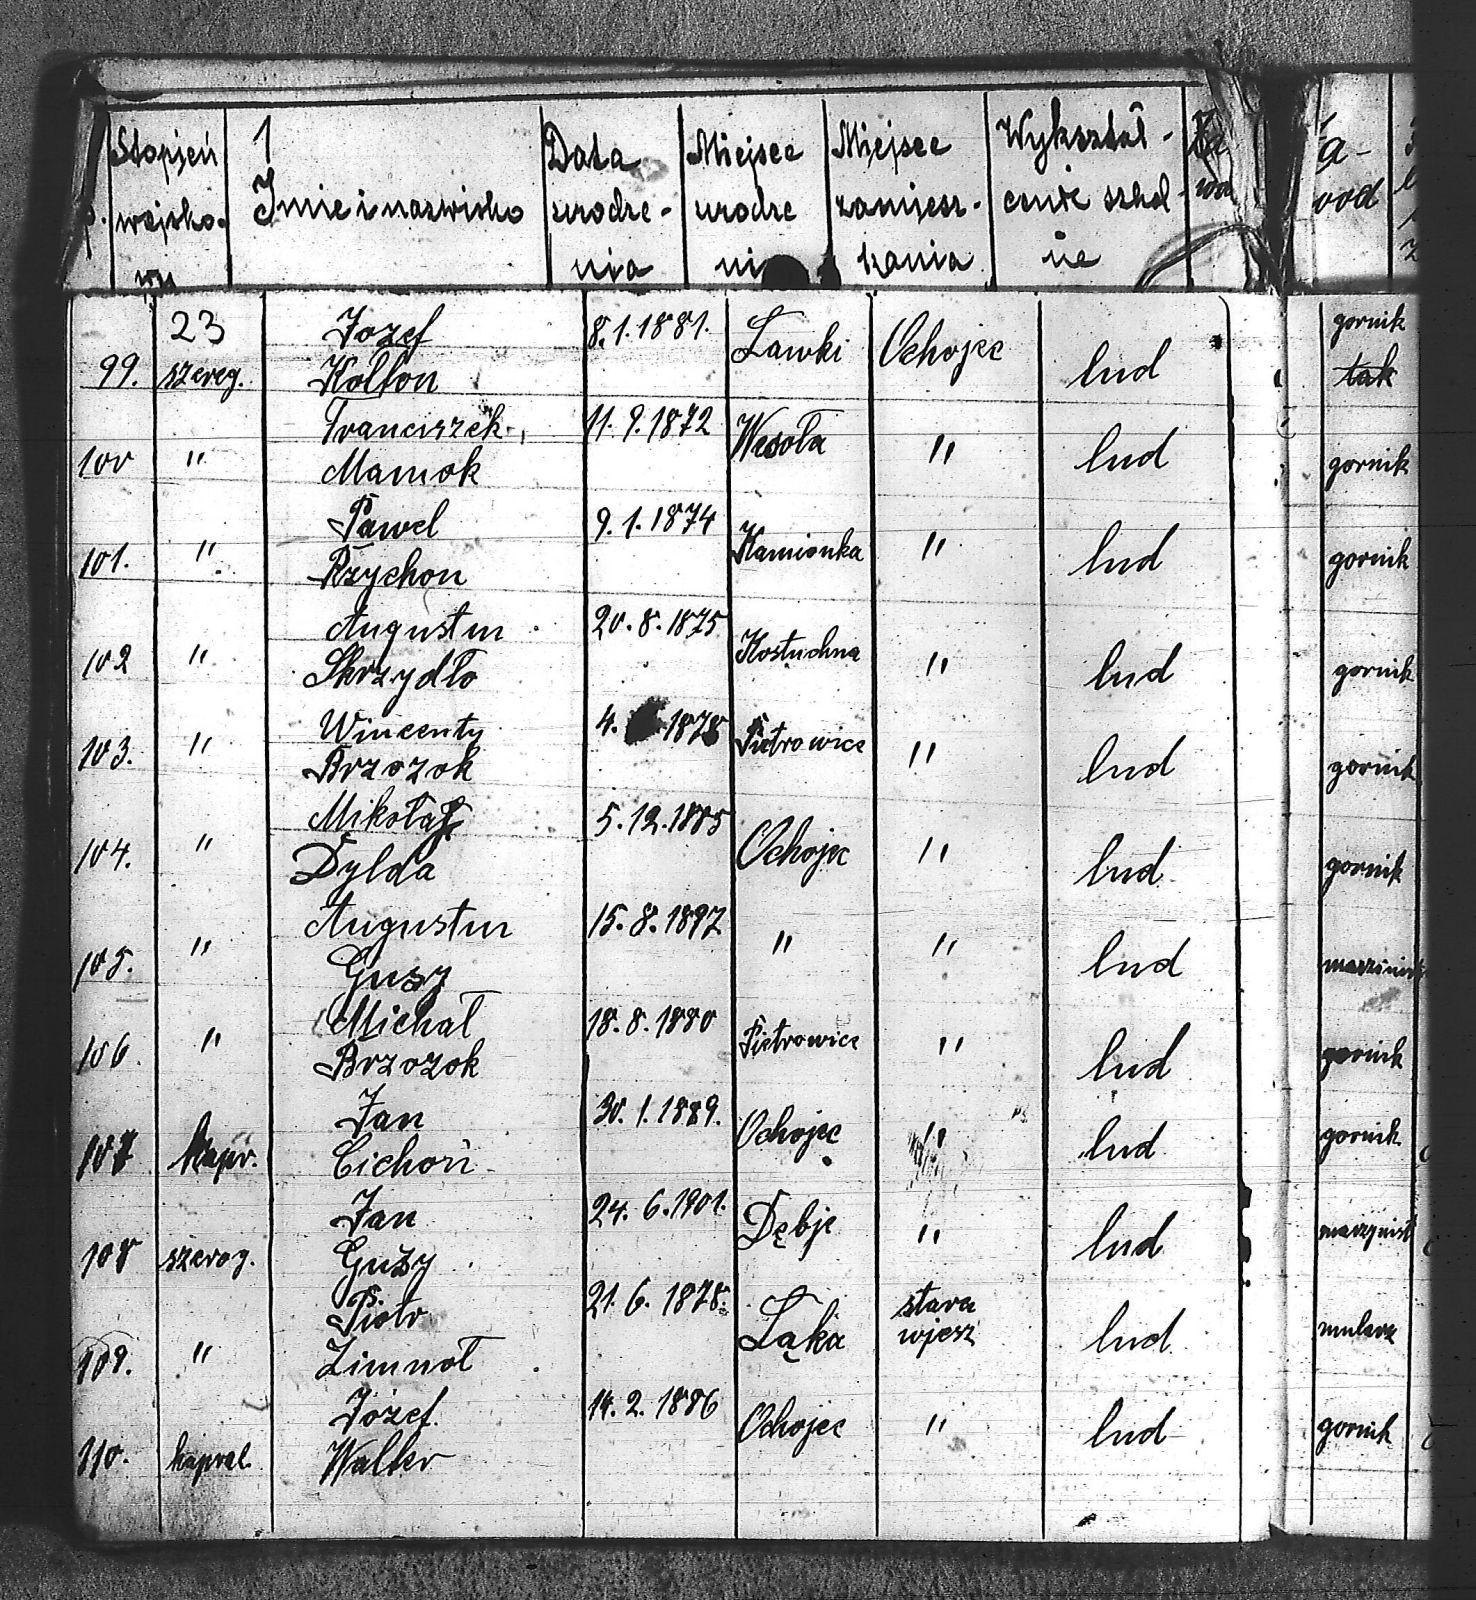 Stopień 1 Data Miejsce Miejsce Wykształ-
wojsko- Imie i nazwisko urodze- urodze zamiesz- cenie szkol- wod
wy nia ni kania ne
23 Jozef 8.1.1881. Ławki Ochojec gornik
99. szereg. Kołton lud tak
Franciszek 11.9.1872 Wesoła
100 " Mamok " lud gornik
Paweł 9.1.1874 Kamionka
101. " Rzychon " lud gornik
Augustin 20.8.1875 Kostuchna
102 " Skrzydło " lud gornik
Wincenty 4. 1878 Pietrowice
103. " Brzozok " lud gornik
Mikołaj 5.12.1885 Ochojec
104. " Dylda " lud gornik
Augustin 15.8.1897
105. " Guzy " " lud
Michał 18.8.1880 Pietrowice
106. " Brzozok " lud gornik
Jan 30.1.1889. Ochojec
107 Kapr. Cichoń " lud gornik
Jan 24.6.1901. Dębje
108 szereg. Guzy " lud
Piotr 21.6.1878. Łąka stara
109. " Zimnoł wjesz lud mularz
Józef 14.2.1886 Ochojec
110. kapral Walter " lud gornik